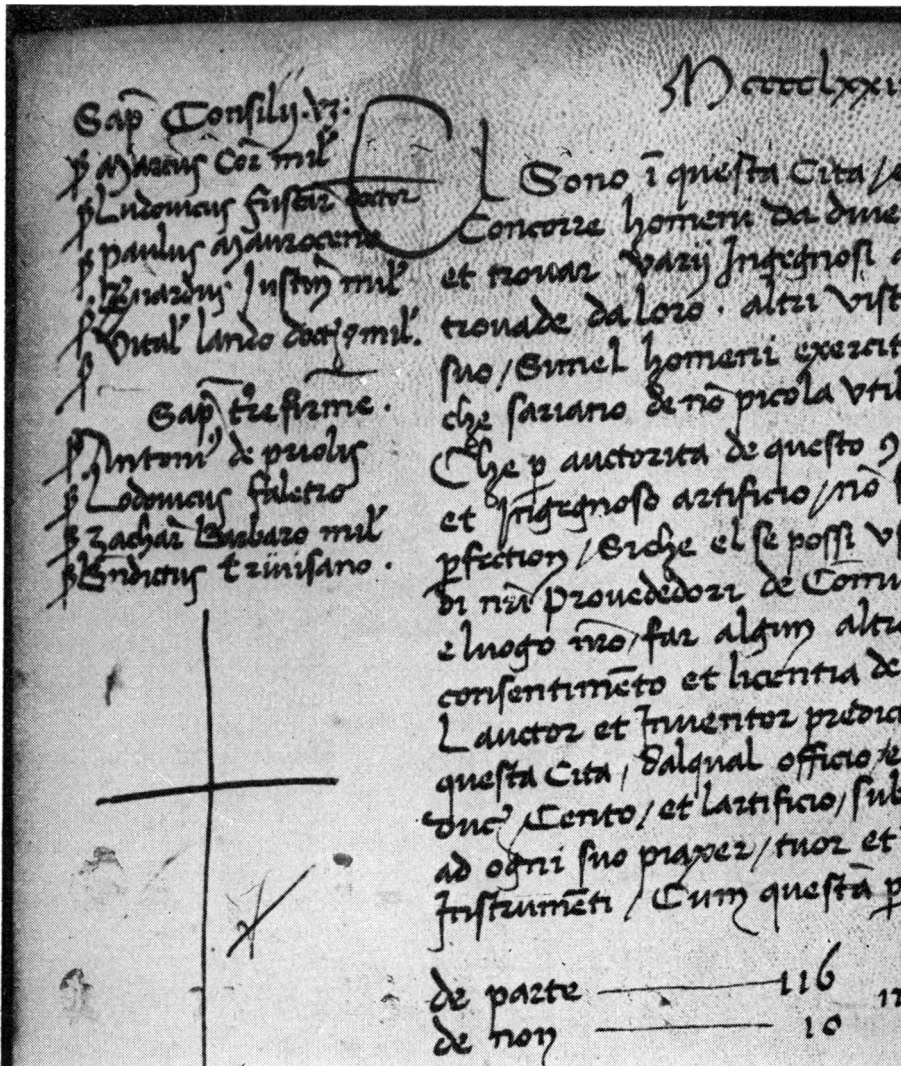 Sap̄ Consilij .vz.
ꝑ Marcus Cor̄ mil'
ꝑ Ludouicus fuscar̄ doctor
ꝑ paulus Maurocen⁹
ꝑ Bernardus Justin̄ mil'
ꝑ Vital' lando doctor ⁊ mil'.
ꝑ
Sap̄ tr̄e firme.
ꝑ Antoni⁹ de priolis
ꝑ Lodouicus faletro
ꝑ zachar̄ Barbaro mil'
ꝑ Bndictus triuisano.
Mcccclxxii
El Sono ī questa Cita / e
Concorre homeni da diue
et trouar varij Ingegnosi a
trouade da loro. altri vist
suo / Simel homeni exercit
che sariano de nō picola vtil
Che ꝑ auctorita de questo 9
et Ingegnoso artificio / nō f
ꝑfection / Siche el se possi vs
di nr̄i Prouededori de Comu
e luogo nr̄o / far algun altro
consentimēto et licentia de
L auctor et Inuentor predic
questa Cita / dalqual officio / e
duc' / Cento / et lartificio / sub
ad ogni suo piaxer / tuor et
Instrumēti / Cum questa p
de parte 116
de non 10